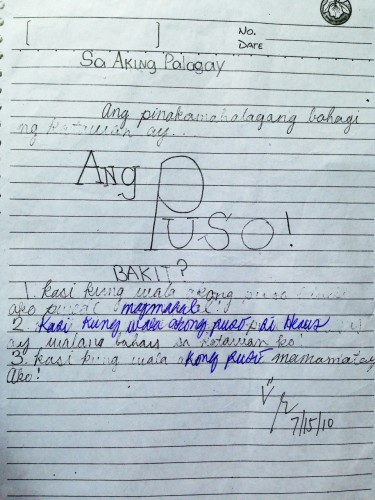 No.
Date
Sa Aking Palagay
Ang pinakamahalagang bahagi
ng katawan ay...
Ang Puso!
BAKIT?
1. kasi kung wala akong puso
ako magmahal!
2. Kasi kung wala akong puso, si Hesus
ay walang bahay sa katawan ko!
3. kasi kung wala akong puso mamamatay
Ako!
7/15/10